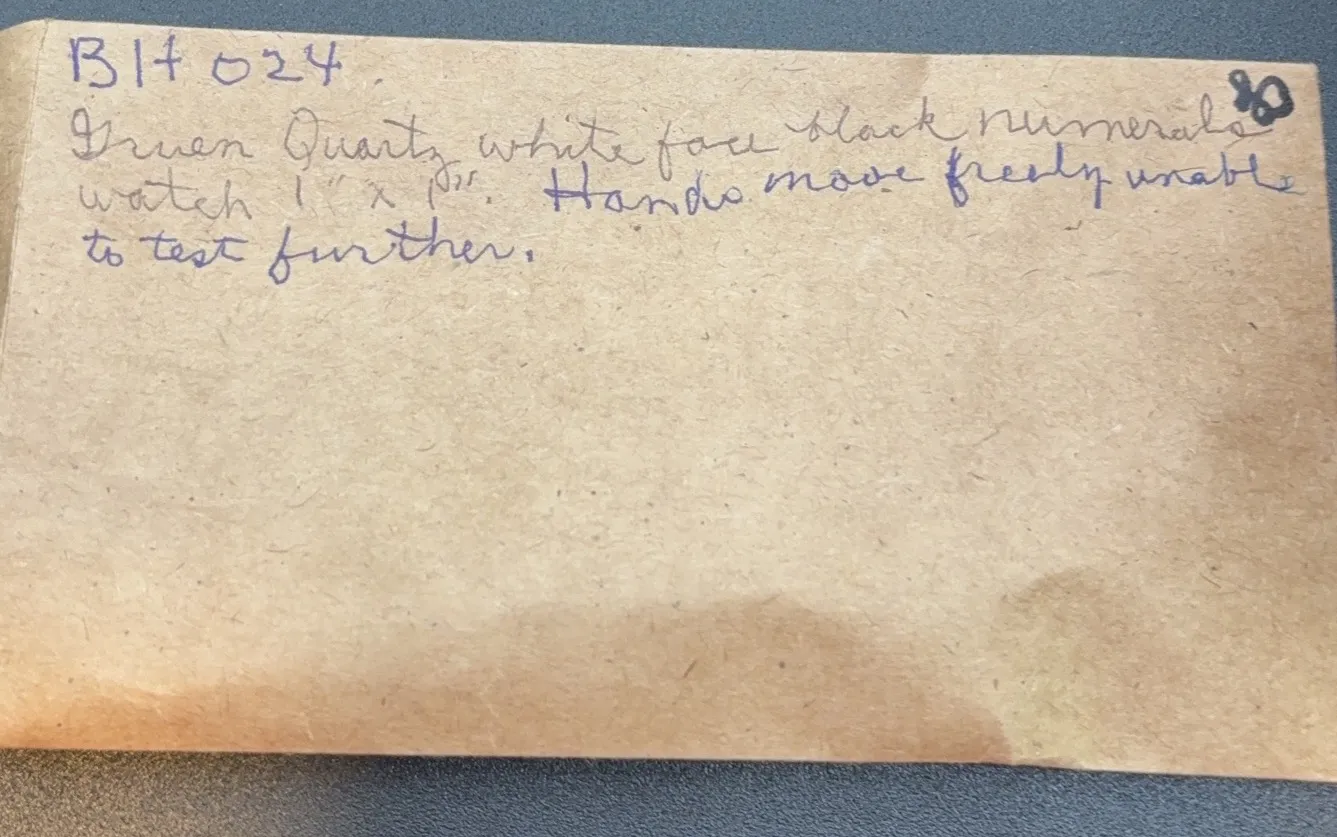 BH 024
80
Gruen Quartz white face black numerals
watch 1" x 1". Hands move freely unable
to test further.